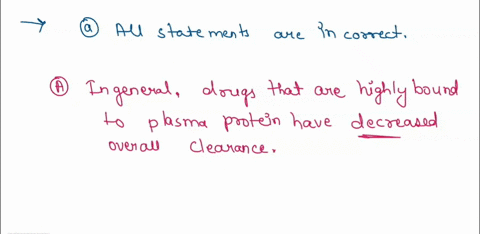 → ⓐ All statements are in correct.
Ⓐ In general, drugs that are highly bound
to plasma protein have decreased
overall clearance.